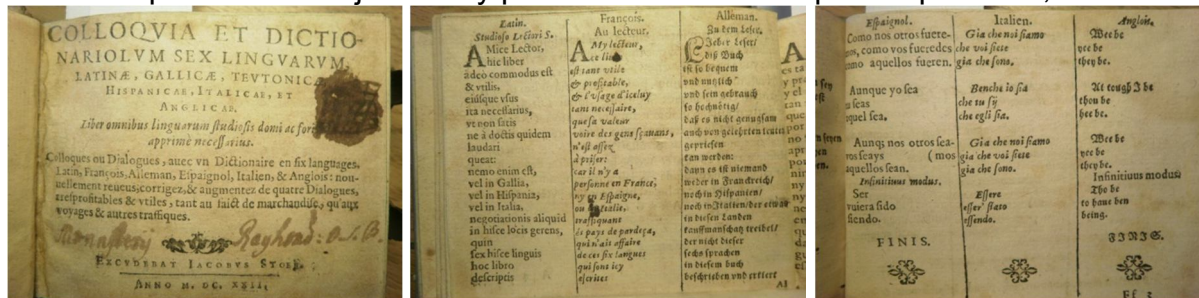 COLLOQVIA ET DICTIO-
NARIOLVM SEX LINGVARVM,
LATINÆ, GALLICÆ, TEVTONICÆ
HISPANICAE, ITALICAE, ET
ANGLICAE.
Liber omnibus linguarum ſtudioſis domi ac for
apprimè neceſſarius.
Colloques ou Dialogues, auec vn Dictionaire en ſix languages.
Latin, François, Alleman, Eſpaignol, Italien, & Anglois: nou-
uellement reueus, corrigez, & augmentez de quatre Dialogues,
treſprofitables & vtiles, tant au faict de marchandiſe, qu'aux
voyages & autres traffiques.
EXCVDEBAT IACOBVS STOER.
ANNO M. DC. XXII.
Latin.
Studioſo Lectori S.
AMice Lector,
hic liber
adeo commodus eſt
& vtilis,
eiúſque vſus
ita neceſſarius,
vt non ſatis
ne à doctis quidem
laudari
queat:
nemo enim eſt,
vel in Gallia,
vel in Hiſpania,
vel in Italia,
negotiationis aliquid
in hiſce locis gerens,
quin
ſex hiſce linguis
hoc libro
deſcriptis
François.
Au lecteur,
AMy lecteur,
ce liu
eſt tant vtile
& profitable,
& l'vſage d'iceluy
tant neceſſaire,
que ſa valeur
voire des gens ſçauans,
n'eſt aſſez
à priſer:
car il n'y a
perſonne en France,
ny en Eſpaigne,
ou Italie,
traffiquant
és pays de pardeça,
qui n'ait affaire
de ces ſix langues
qui ſont icy
eſcrites
Alleman.
Zu dem Leſer.
LIeber Leſer/
diß Buch
iſt ſo bequem
vnd nutzlich
vnd ſein gebrauch
ſo hochnötig/
daß es nicht genugſam
auch von gelehrten leuten
geprieſen
kan werden:
dann es iſt niemand
weder in Franckreich/
noch in Hiſpanien/
noch in Italien/der etwan
in dieſen Landen
kauffmanſchaft treibet/
der nicht dieſer
ſechs ſprachen
in dieſem buch
beſchrieben vnd erklert
Eſpaignol.
Como nos otros fuere-
mos, como vos fueredes
como aquellos fueren.
Aunque yo ſea
tu ſeas
aquel ſea.
Aunq; nos otros ſea-
vos ſeays (mos
aquellos ſean.
Infinitiuus modus.
Ser
vuiera ſido
ſiendo.
FINIS.
Italien.
Gia che noi ſiamo
che voi ſiete
gia che ſono.
Benche io ſia
che tu ſij
che egli ſia.
Gia che noi ſiamo
gia che voi ſiete
gia che ſono.
Eſſere
eſſer' ſtato
eſſendo.
Anglois.
Wee be
yee be
they be.
Al tough I be
thou be
hee be.
Wee be
yee be
they be.
Infinitiuus modus
Tho be
to haue ben
being.
FINIS.